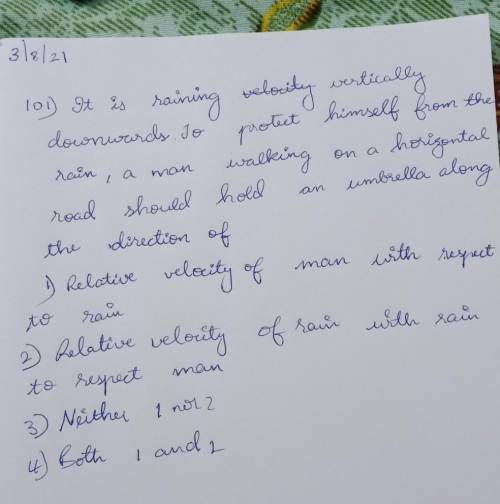 3/8/21
101) It is raining velocity vertically
downwards. To protect himself from the
rain, a man walking on a horizontal
road should hold an umbrella along
the direction of
1) Relative velocity of man with respect
to rain
2) Relative velocity of rain with rain
to respect man
3) Neither 1 nor 2
4) Both 1 and 2